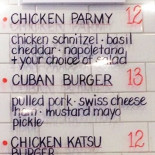 • CHICKEN PARMY 12
chicken schnitzel • basil
cheddar • napoletana
+ your choice of salad
• CUBAN BURGER 13
pulled pork • swiss cheese
ham • mustard mayo
pickle
• CHICKEN KATSU 12
BURGER